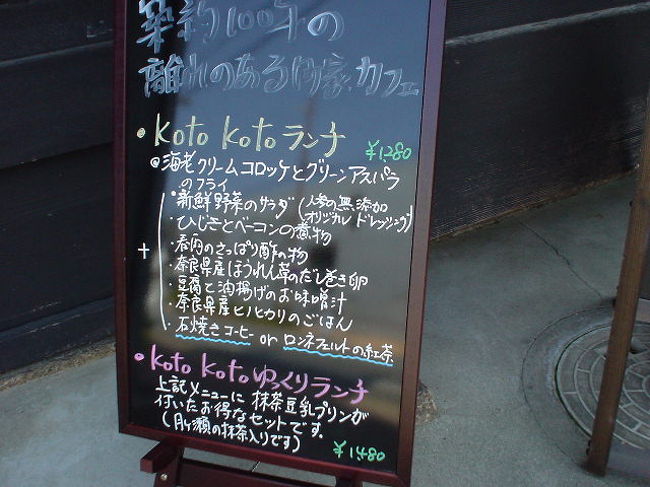 築約100年の
離れのある町家カフェ
・koto kotoランチ ¥1,280
◎海老クリームコロッケとグリーンアスパラ
のフライ
・新鮮野菜のサラダ(人参の無添加
オリジナルドレッシング)
・ひじきとベーコンの煮物
+ ・春雨のさっぱり酢の物
・奈良県産ほうれん草のだし巻き卵
・豆腐と油揚げのお味噌汁
・奈良県産ヒノヒカリのごはん
・石焼きコーヒー or ロンネフェルトの紅茶
・koto kotoゆっくりランチ
上記メニューに抹茶豆乳プリンが
付いたお得なセットです。
(月ヶ瀬の抹茶入りです) ¥1,480